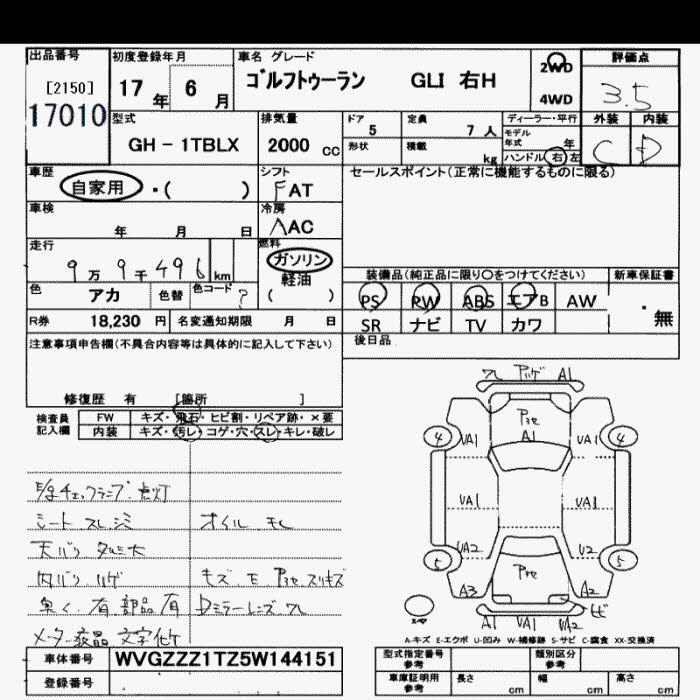 出品番号 初度登録年月 車名 グレード 評価点
[2150] 17 年 6 月 ゴルフトゥーラン GLI 右H 2WD 3.5
17010 4WD
型式 排気量 ドア 定員 ディーラー・平行 外装 内装
GH - 1TBLX 2000 cc 5 7 人 モデル年式 年 C D
形状 積載 kg ハンドル 右 左
車歴 シフト セールスポイント(正常に機能するものに限る)
自家用 ・( ) FAT
車検 冷房
年 月 日 AAC
走行 燃料
9万9千496km ガソリン
軽油
( )
装備品(純正品に限り○をつけてください) 新車保証書
色 アカ 色替 色コード ? PS PW ABS エアB AW ・無
R券 18,230 円 名変通知期限 月 日 SR ナビ TV カワ
注意事項申告欄(不具合内容等は具体的に記入して下さい) 後日品
修復歴 有 [箇所 ]
検査員記入欄 FW キズ・飛石・ヒビ割・リペア跡・×要
内装 キズ・汚レ・コゲ・穴・スレ・キレ・破レ
A1
A1
4 VA1 VA1 4
VA1 VA1
VA2 U2
5 5
A3 A2
A1 VA1 VA2
チェックランプ 点灯
シート スレ オイル モレ
天バリ タルミ大
内バリ ハゲ キズ
臭く 有 部品 有 Dミラーレンズ
メーター液晶 文字
A-キズ E-エクボ U-凹み W-補修跡 S-サビ C-腐食 XX-交換済
車体番号 WVGZZZ1TZ5W144151 型式指定番号 参考 類別区分 参考
登録番号 車庫証明用 参考 長さ cm 幅 cm 高さ cm